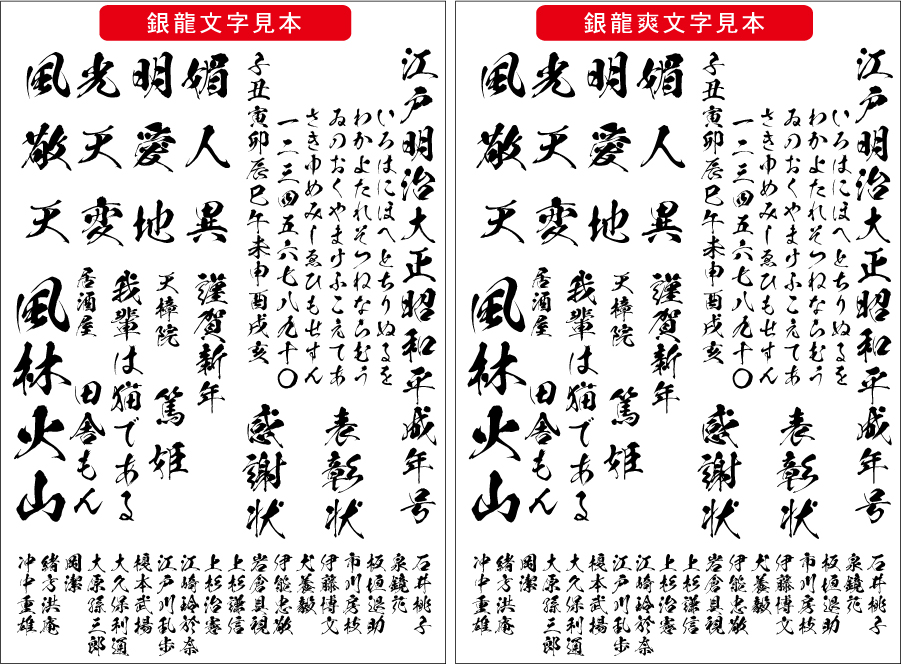 銀龍文字見本
江戸明治大正昭和平成年号
いろはにほへとちりぬるを
わかよたれそつねならむう
ゐのおくやまけふこえてあ
さきゆめみしゑひもせすん
一二三四五六七八九十〇
子丑寅卯辰巳午未申酉戌亥
表彰状
感謝状
媚人異
明愛地
光天変
風敬天
謹賀新年
天樟院 篤姫
我輩は猫である
居酒屋 田舎もん
風林火山
石井桃子
泉鏡花
板垣退助
市川房枝
伊藤博文
犬養毅
伊能忠敬
岩倉具視
上杉謙信
上杉治憲
江崎玲於奈
江戸川乱歩
榎本武揚
大久保利通
大原孫三郎
岡潔
緒方洪庵
沖中重雄
銀龍爽文字見本
江戸明治大正昭和平成年号
いろはにほへとちりぬるを
わかよたれそつねならむう
ゐのおくやまけふこえてあ
さきゆめみしゑひもせすん
一二三四五六七八九十〇
子丑寅卯辰巳午未申酉戌亥
表彰状
感謝状
媚人異
明愛地
光天変
風敬天
謹賀新年
天樟院 篤姫
我輩は猫である
居酒屋 田舎もん
風林火山
石井桃子
泉鏡花
板垣退助
市川房枝
伊藤博文
犬養毅
伊能忠敬
岩倉具視
上杉謙信
上杉治憲
江崎玲於奈
江戸川乱歩
榎本武揚
大久保利通
大原孫三郎
岡潔
緒方洪庵
沖中重雄